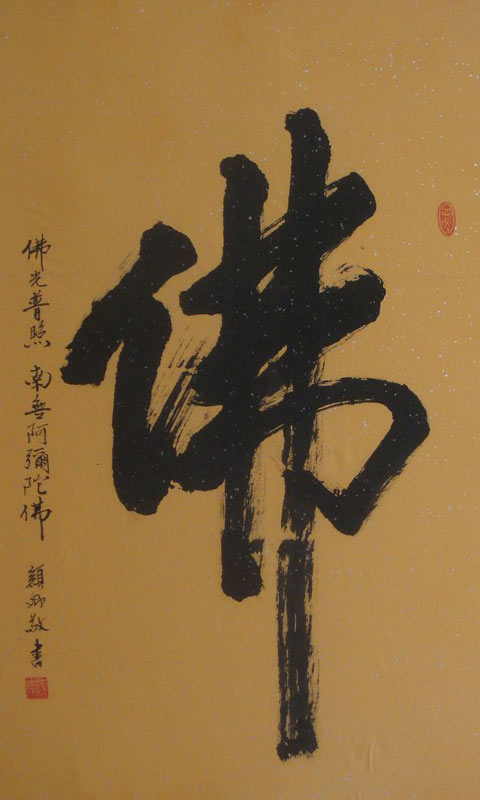 佛
佛光普照 南無阿彌陀佛 顏卿敬書